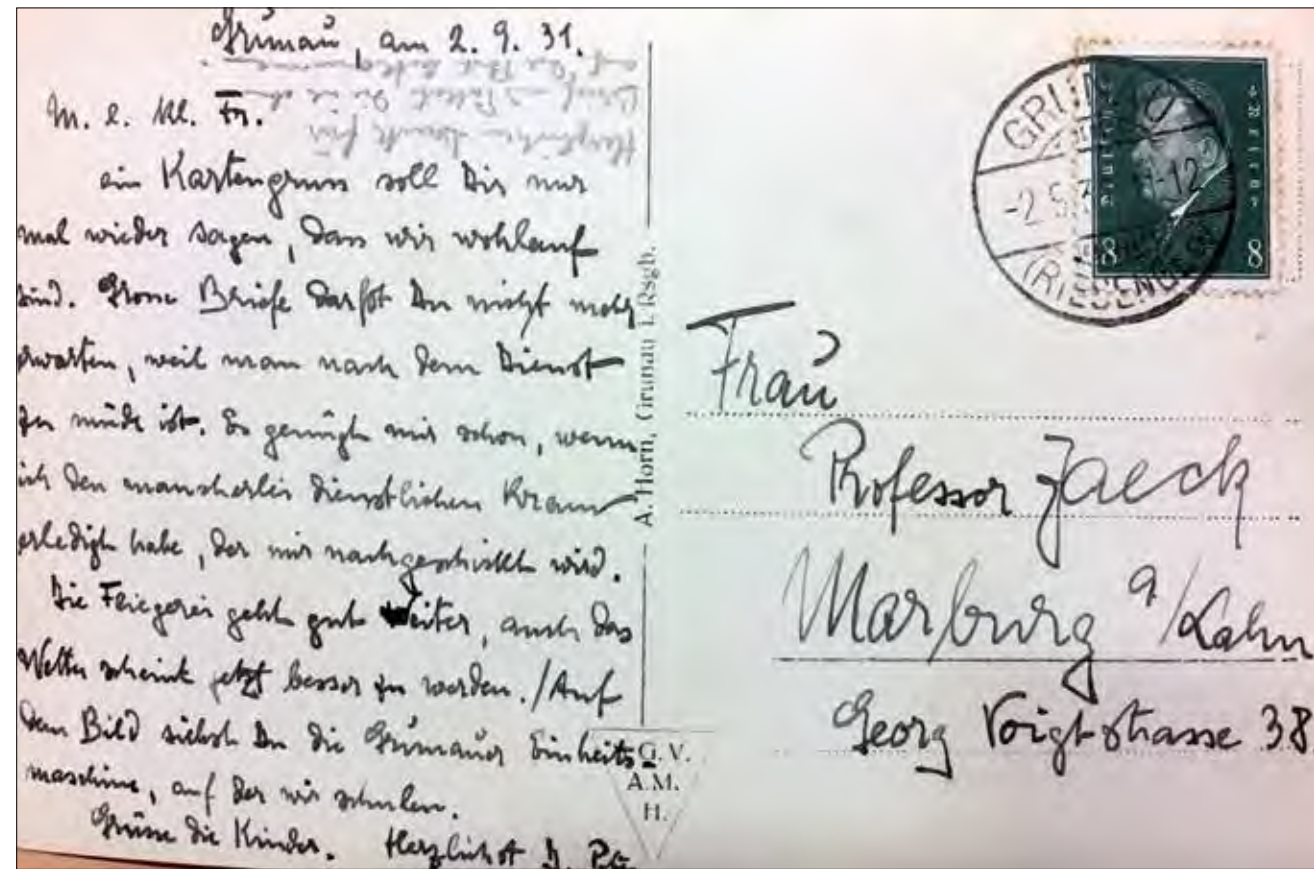 Grunau, am 2. 9. 31.
M. l. kl. Fr.
ein Kartengruss soll Dir nur
mal wieder sagen, dass wir wohlauf
sind. Grosse Briefe darfst Du nicht mehr
erwarten, weil man nach dem Dienst
zu müde ist. Es genügt mir schon, wenn
ich den mancherlei dienstlichen Kram
erledigt habe, der mir nachgeschickt wird.
Die Fliegerei geht gut weiter, auch das
Wetter scheint jetzt besser zu werden. / Auf
dem Bild siehst Du die Grunauer Einheits
maschine, auf der wir schulen.
Grüsse die Kinder. Herzlichst D.
Herzlichen Dank für
Brief und Paket, die ich eben
auf der Post
A. Horn, Grunau i. Rsgb.
G. V.
A. M.
H.
GRUNAU
-2.9.31
-12
(RIESENGEB.)
Deutsches Reich
8 8
Frau
Professor Jaeck
Marburg a/Lahn
Georg Voigt-strasse 38